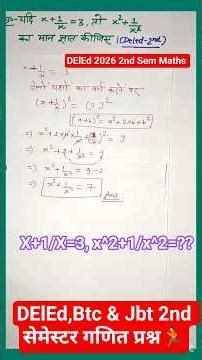 प्रo-यदि x+1/x=3, तो x²+1/x²
का मान ज्ञात कीजिए (Deled-2nd)
DElEd 2026 2nd Sem Maths
x+1/x = 3
दोनों पक्षों का वर्ग करने पर
(x+1/x)² = (3)²
(a+b)² = a²+2ab+b²
⇒ x²+2×x×1/x+(1/x)² = 9
⇒ x²+2+1/x² = 9
⇒ x²+1/x² = 9-2
⇒ x²+1/x² = 7 Ans
X+1/X=3, x^2+1/x^2=??
DElEd,Btc & Jbt 2nd
सेमेस्टर गणित प्रश्न🏃